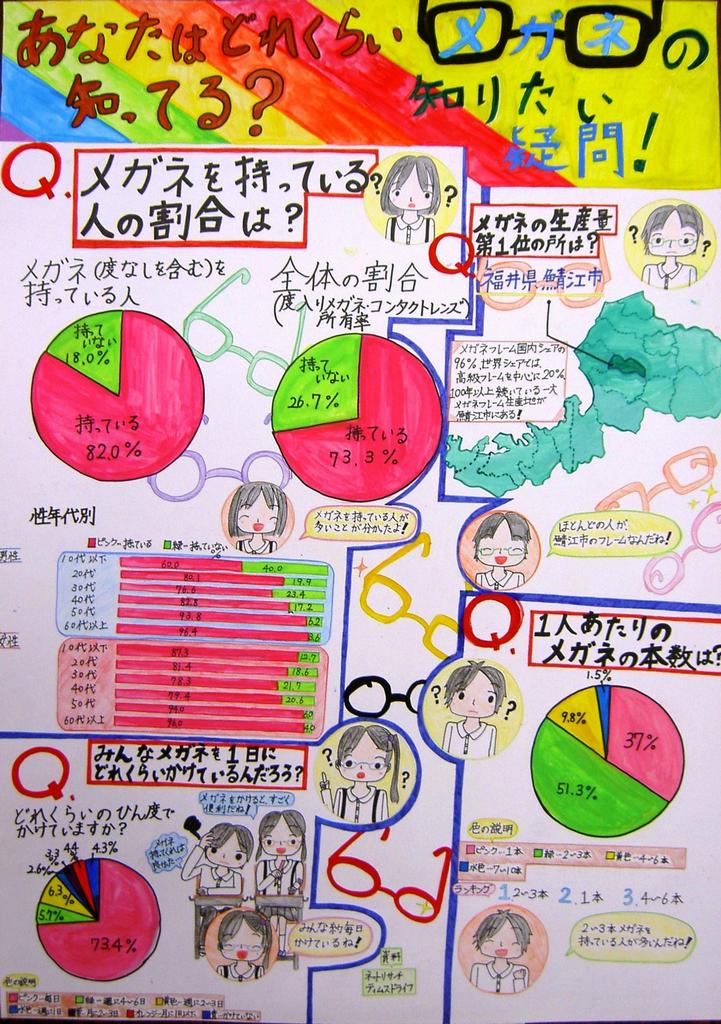 あなたはどれくらい
知ってる?
メガネの
知りたい
疑問!
Q.
メガネを持っている
人の割合は?
?
?
メガネ(度なしを含む)を
持っている人
持って
いない
18.0%
持っている
82.0%
全体の割合
(度入りメガネ・コンタクトレンズ)
所有率
持って
いない
26.7%
持っている
73.3%
Q
メガネの生産量
第1位の所は?
?
?
福井県鯖江市
メガネフレーム国内シェアの
96%、世界シェアでは、
高級フレームを中心に20%、
100年以上続いている一大
メガネフレーム生産地が
鯖江市にある!
ほとんどの人が、
鯖江市のフレームなんだね!
メガネを持っている人が
多いことが分かったよ!
性年代別
ピンク…持っている
緑…持っていない
男性
10代以下 60.0 40.0
20代 80.1 19.9
30代 76.6 23.4
40代 17.2
50代 93.8 6.2
60代以上 96.4 3.6
女性
10代以下 87.3 12.7
20代 81.4 18.6
30代 78.3 21.7
40代 79.4 20.6
50代 94.0 6.0
60代以上 96.0 4.0
Q.
1人あたりの
メガネの本数は?
?
?
1.5%
9.8%
37%
51.3%
色の説明
ピンク…1本
緑…2~3本
黄色…4~6本
水色…7~10本
ランキング 1. 2~3本 2. 1本 3. 4~6本
2~3本メガネを
持っている人が多いんだね!
Q.
みんなメガネを1日に
どれくらいかけているんだろう?
?
?
どれくらいのひん度で
かけていますか?
メガネをかけると、すごく
便利だね!
メガネ
持ってくれば
良かった…
4.3%
4.4
3.3
2.6%
6.3%
5.7%
73.4%
みんな約毎日
かけているね!
色の説明
ピンク…毎日
緑…週に4~6日
黄色…週に2~3日
水色…週に1日
月に2~3日
オレンジ…月に1日以下
かけていない
資料
ネットリサーチ
ティムスドライブ